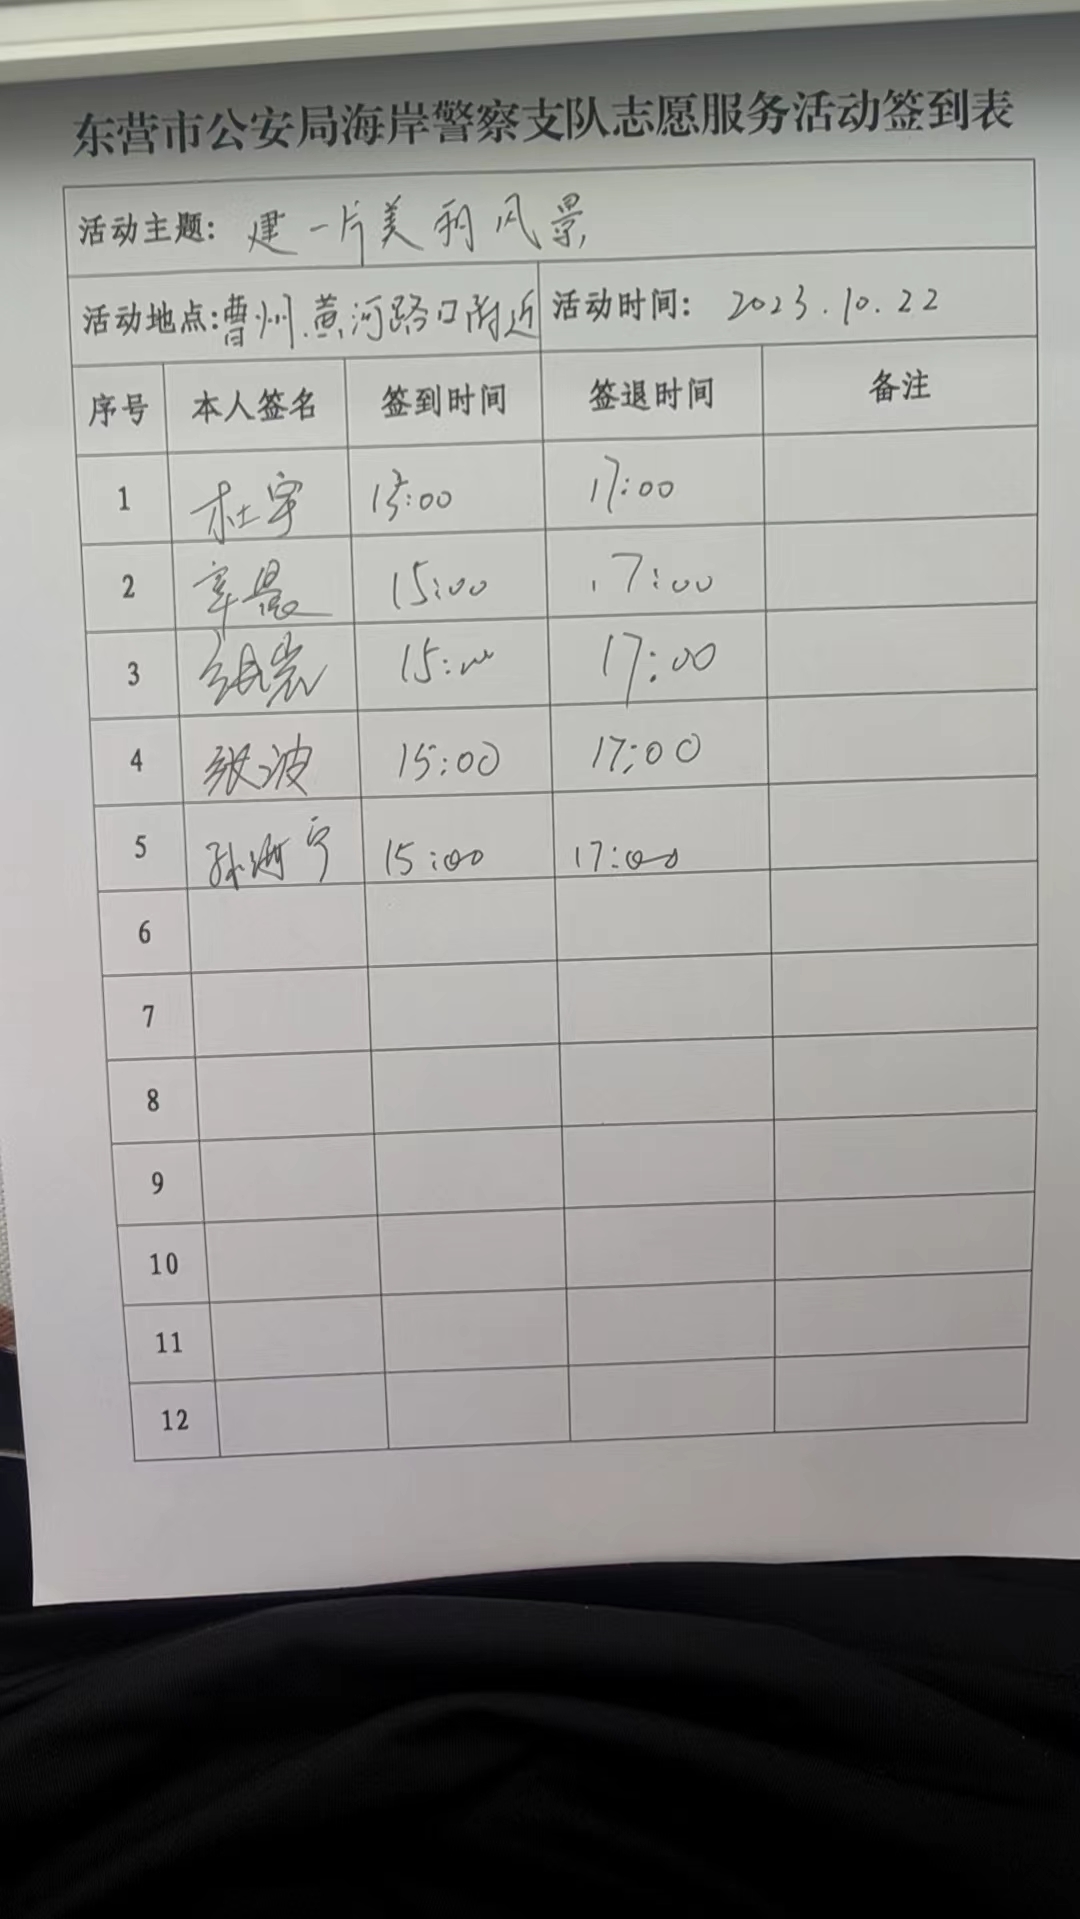 东营市公安局海岸警察支队志愿服务活动签到表
活动主题: 建一片美利风景
活动地点:曹州.黄河路口附近 活动时间: 2023.10.22
序号 本人签名 签到时间 签退时间 备注
1 杜宇 15:00 17:00
2 15:00 17:00
3 张岩 15:00 17:00
4 张波 15:00 17:00
5 15:00 17:00
6
7
8
9
10
11
12